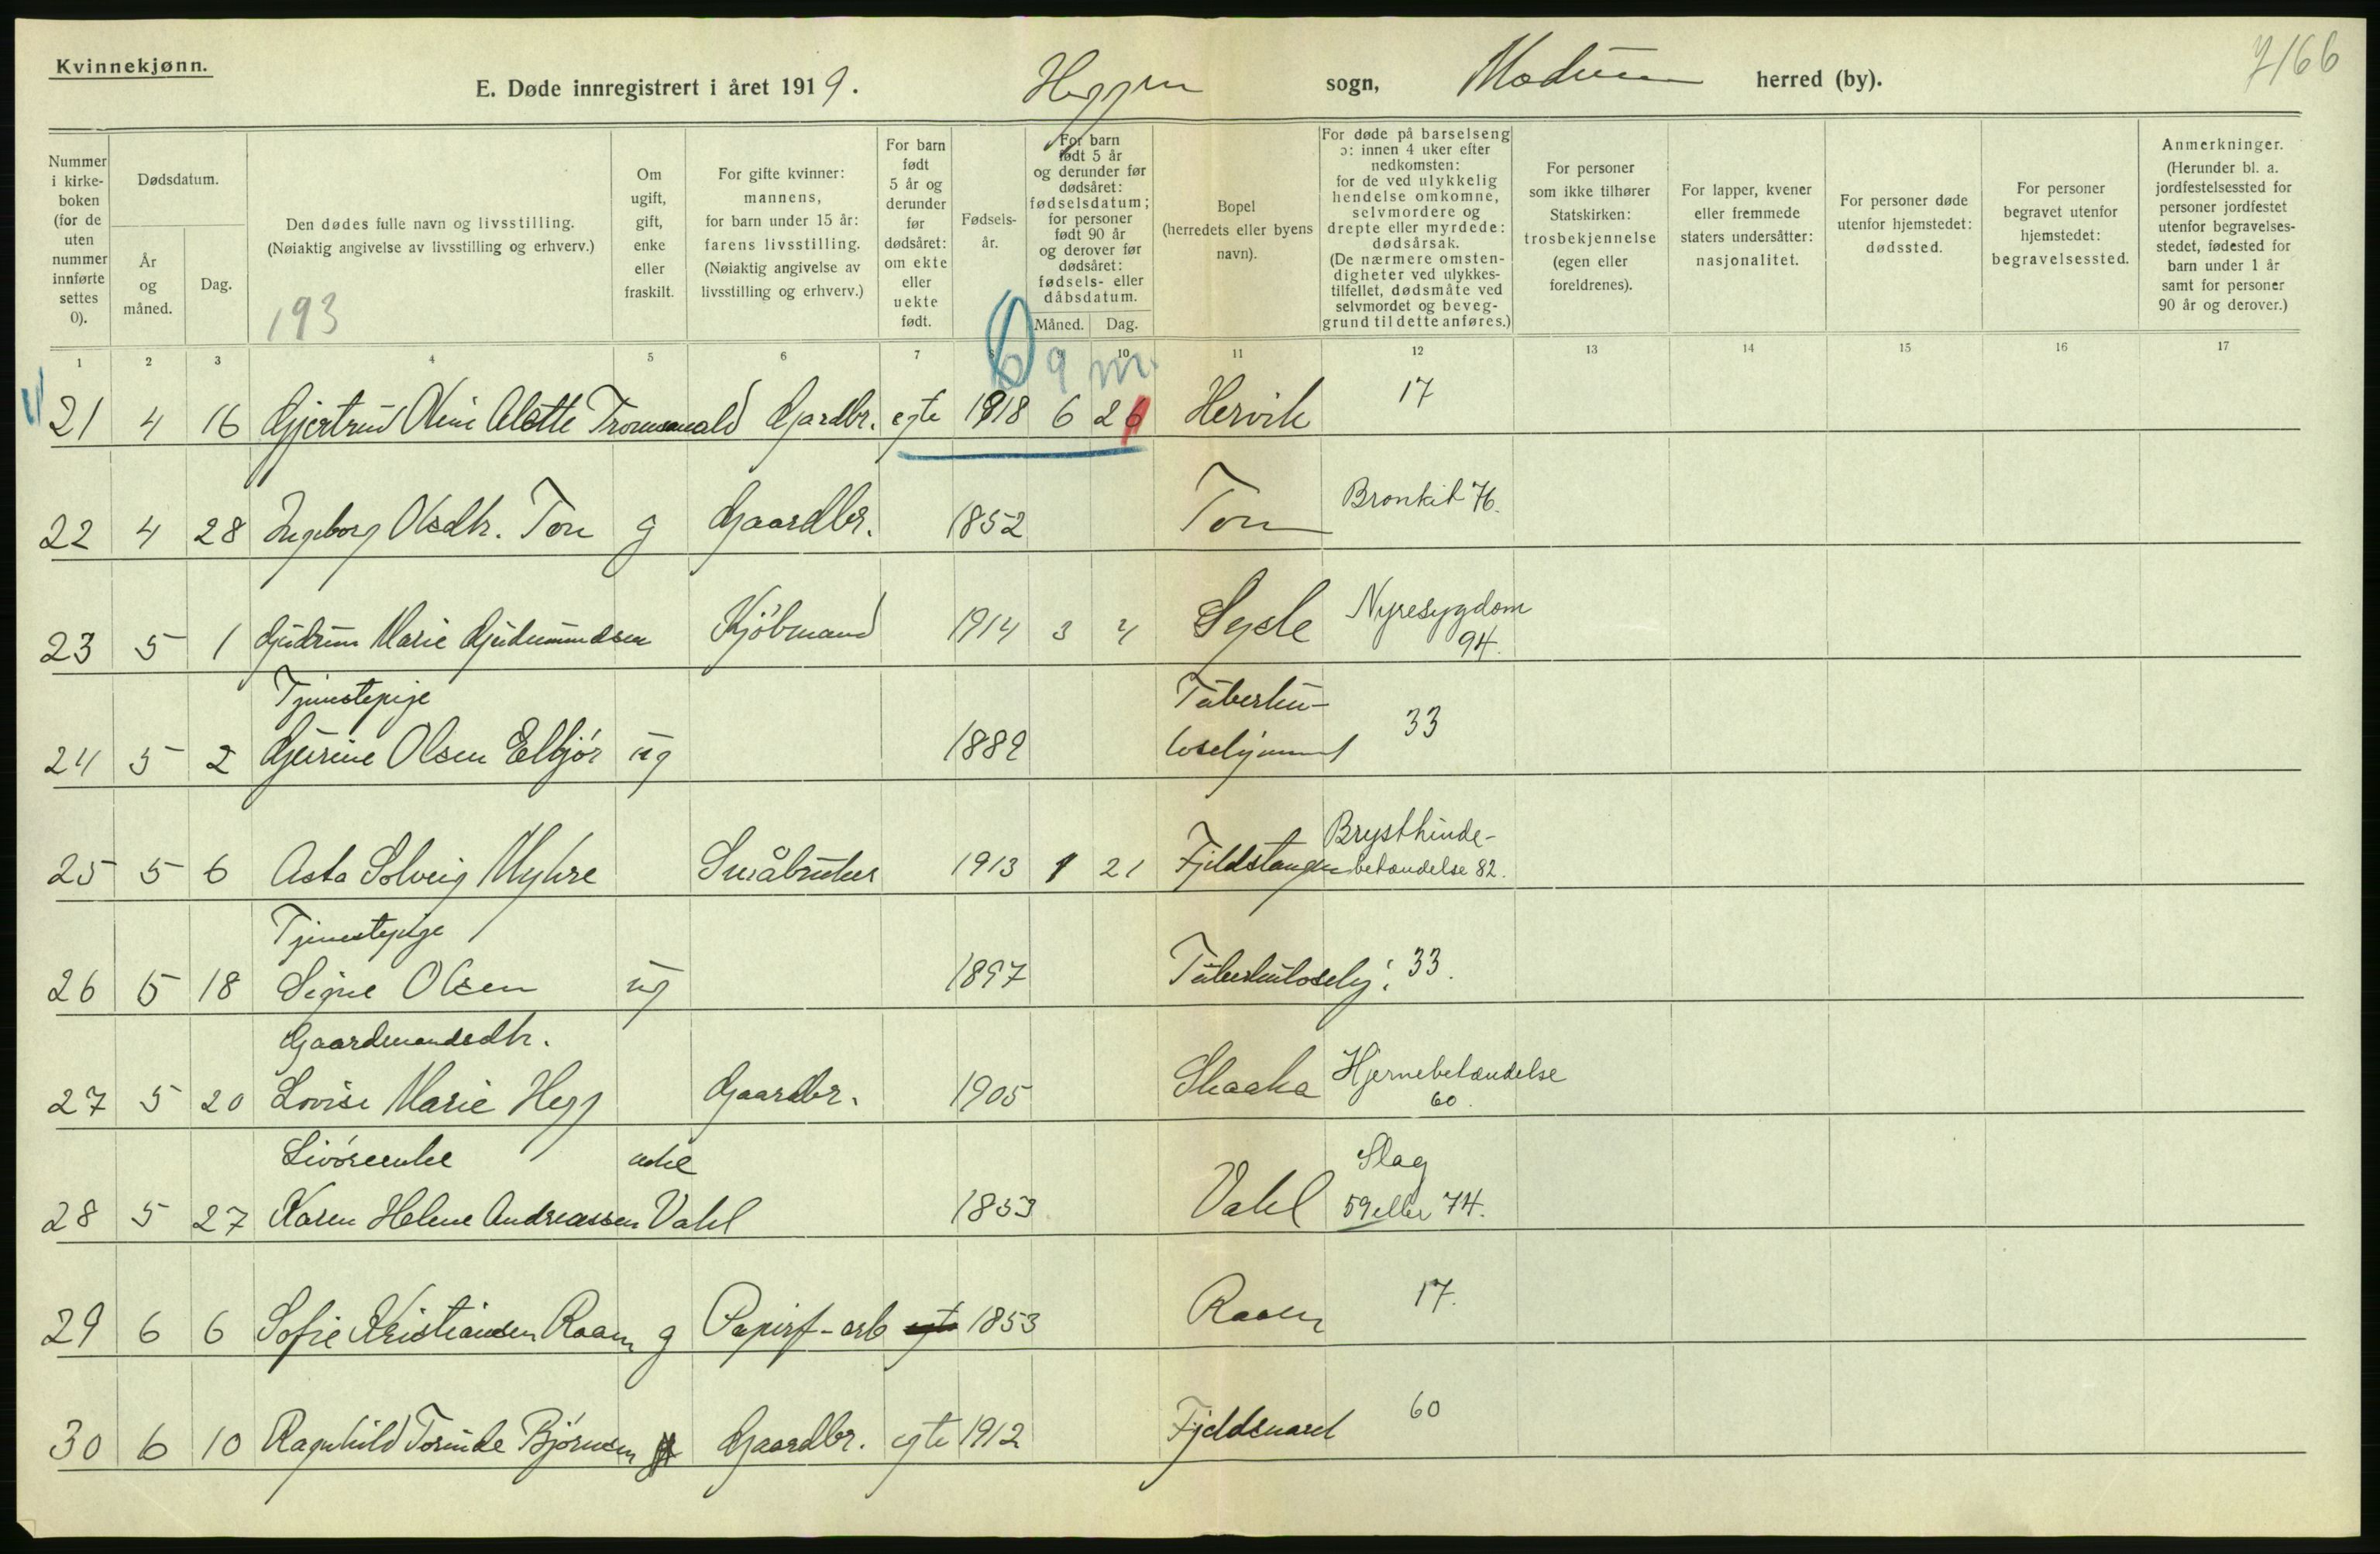 Kvinnekjønn.
E. Døde innregistrert i året 1919. Heggen sogn, Modum herred (by).
7/66
Nummer i kirkeboken (for de uten nummer innførte settes 0).
Dødsdatum.
År og måned.
Dag.
Den dødes fulle navn og livsstilling.
(Nøiaktig angivelse av livsstilling og erhverv.)
193
Om ugift, gift, enke eller fraskilt.
For gifte kvinner: mannens, for barn under 15 år: farens livsstilling. (Nøiaktig angivelse av livsstilling og erhverv.)
For barn født 5 år og derunder før dødsåret: om ekte eller uekte født.
Fødselsår.
For barn født 5 år og derunder før dødsåret: fødselsdatum; for personer født 90 år og derover før dødsåret: fødsels- eller dåbsdatum.
Måned. Dag.
Bopel (herredets eller byens navn).
For døde på barselseng ɔ: innen 4 uker efter nedkomsten: for de ved ulykkelig hendelse omkomne, selvmordere og drepte eller myrdede: dødsårsak. (De nærmere omstendigheter ved ulykkestilfellet, dødsmåte ved selvmordet og beveggrund til dette anføres.)
For personer som ikke tilhører Statskirken: trosbekjennelse (egen eller foreldrenes).
For lapper, kvener eller fremmede staters undersåtter: nasjonalitet.
For personer døde utenfor hjemstedet: dødssted.
For personer begravet utenfor hjemstedet: begravelsessted.
Anmerkninger. (Herunder bl. a. jordfestelsessted for personer jordfestet utenfor begravelsesstedet, fødested for barn under 1 år samt for personer 90 år og derover.)
1 2 3 4 5 6 7 8 9 10 11 12 13 14 15 16 17
9 m.
21 4 16 Gjertrud Oline Alette Gardbr. egte 1918 6 26 Hervik 17
22 4 28 Ingeborg Olsdtr. Ton g Gaardbr. 1852 Ton Bronkit 76.
23 5 1 Gudrun Marie Gudmundsen Kjøbmand 1914 3 4 Sysle Nyresygdom
94.
Tjenestepige Tuberku-
24 5 2 Gurine Olsen Elgjør ug 1882 losehjemmet 33
Brysthinde-
25 5 6 Asta Solveig Myhre Småbruker 1913 1 21 Fjeldstangen betændelse 82.
Tjenestepige
26 5 18 Signe Olsen ug 1897 Tuberkulosehj. 33.
Gaardmandsdtr.
27 5 20 Lovise Marie Hegg Gaardbr. 1905 Skaaka Hjernebetændelse
60.
enke Slag
28 5 27 Karen Helene Andreassen Vahl 1853 Vahl 59 eller 74.
29 6 6 Sofie Kristiansen Raaen g Papirf-arb egte 1853 Raaen 17.
30 6 10 Ragnhild Torunde Bjørnsen Gaardbr. egte 1912 60